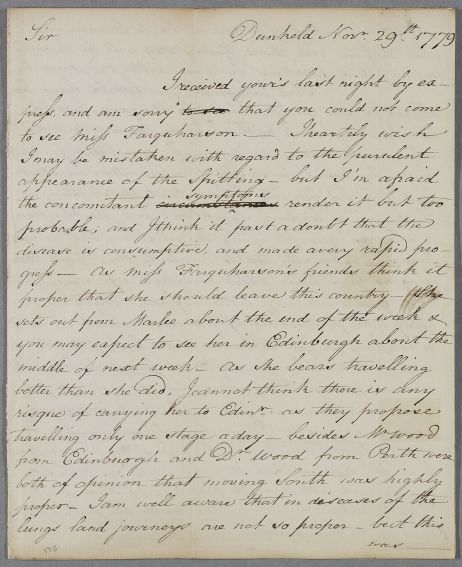 Sir Dunkeld Novr. 29th. 1779
I received your's last night by ex-
press, and am sorry to see that you could not come
to see Miss Farquharson. — I heartily wish
I may be mistaken with regard to the purulent
appearance of the spitting — but I'm afraid
symptoms
the concomitant circumstances render it but too
probable; and I think it past a doubt that the
disease is consumptive, and made a very rapid pro-
gress — As Miss Farquharson's friends think it
proper that she should leave this country — She
sets out from Marlee about the end of the week &
you may expect to see her in Edinburgh about the
middle of next week — As she bears travelling
better than she did, I cannot think there is any
risque of carrying her to Edinr. as they propose
travelling only one stage a day — besides Mr. Wood
from Edinburgh and Dr. Wood from Perth were
both of opinion that moving South was highly
proper — I am well aware that in diseases of the
lungs land journeys are not so proper — but this
was —